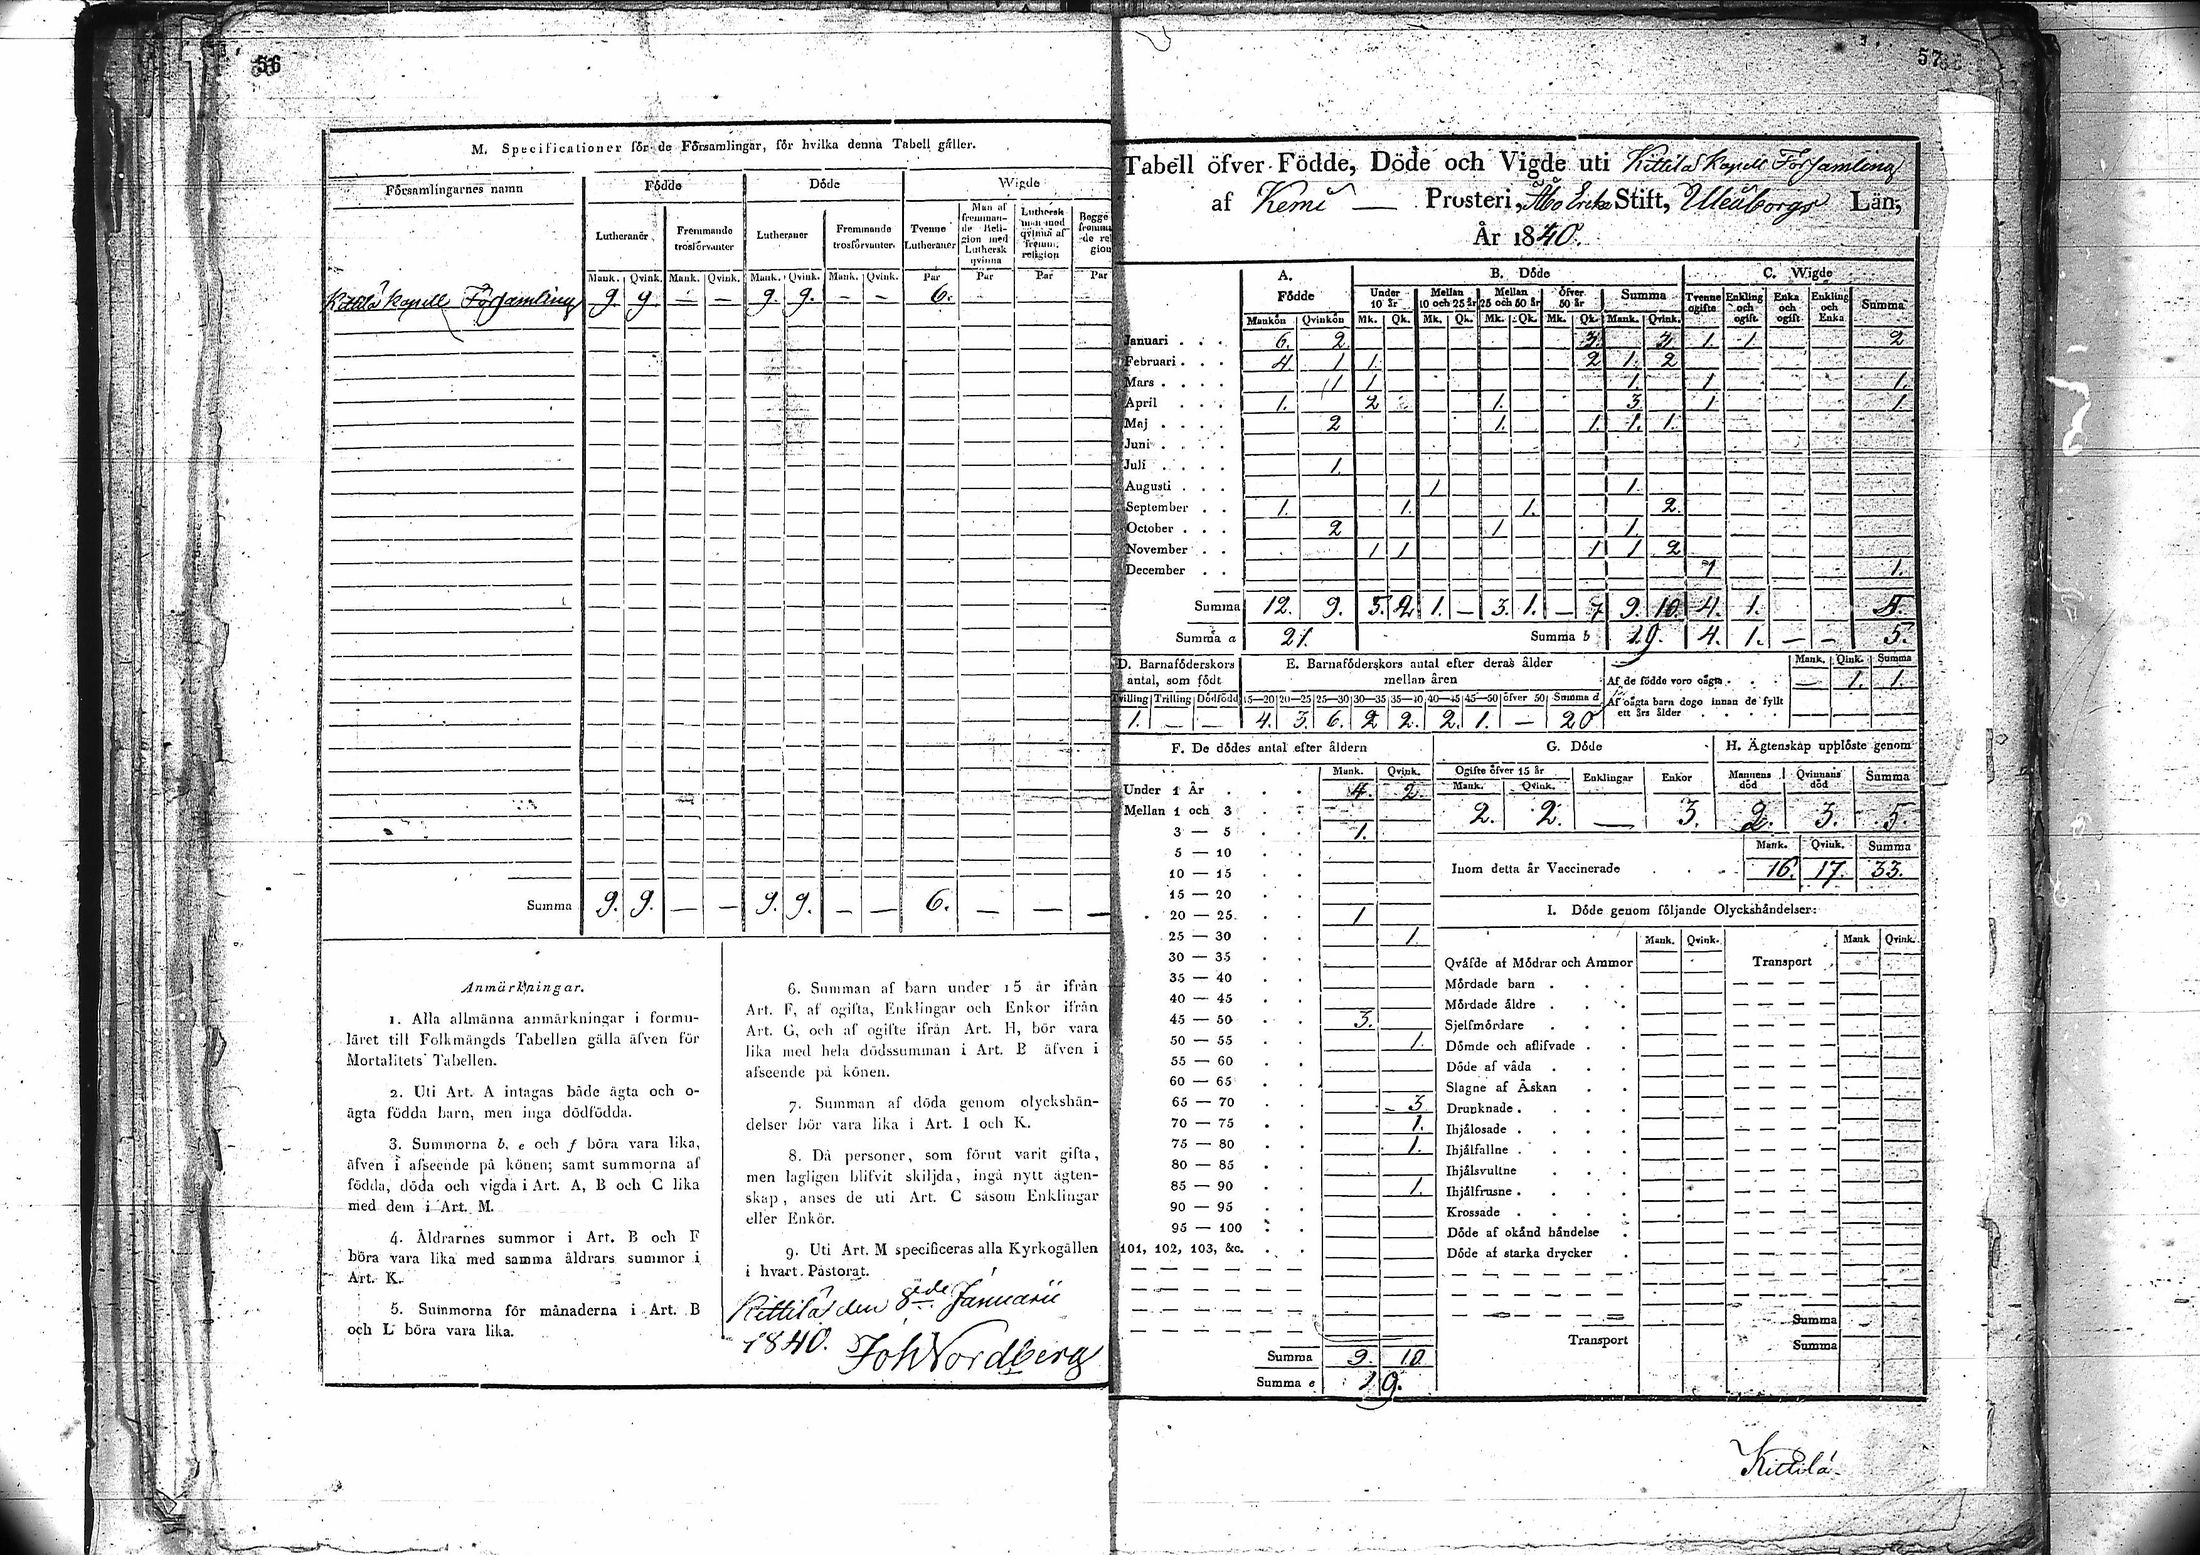 56
M. Specificationer för de Församlingar, för hvilka denna Tabell gäller.
Församlingarnes namn Födde Döde Wigde
Lutheraner Fremmande trosförvanter Lutheraner Fremmande trosförvanter Tvenne Lutheraner Man af fremmande Religion med Luthersk qvinna Luthersk man med qvinna af fremm. religion Begge fremmande religion
Mank. Qvink. Mank. Qvink. Mank. Qvink. Mank. Qvink. Par Par Par Par
Kittilä kapell Församling 9. 9. — — 9. 9. — — 6.
Summa 9. 9. — — 9. 9. — — 6. — — —
Anmärkningar.
1. Alla allmänna anmärkningar i formu-
läret till Folkmängds Tabellen gälla äfven för
Mortalitets Tabellen.
2. Uti Art. A intagas både ägta och o-
ägta födda barn, men inga dödfödda.
3. Summorna b. e och f böra vara lika,
äfven i afseende på könen; samt summorna af
födda, döda och vigda i Art. A, B och C lika
med dem i Art. M.
4. Åldrarnes summor i Art. B och F
böra vara lika med samma åldrars summor i
Art. K.
5. Summorna för månaderna i Art. B
och L böra vara lika.
6. Summan af barn under 15 år ifrån
Art. F, af ogifta, Enklingar och Enkor ifrån
Art. G, och af ogifte ifrån Art. H, bör vara
lika med hela dödssumman i Art. B äfven i
afseende på könen.
7. Summan af döda genom olyckshän-
delser bör vara lika i Art. I och K.
8. Då personer, som förut varit gifta,
men lagligen blifvit skiljda, ingå nytt ägten-
skap, anses de uti Art. C såsom Enklingar
eller Enkor.
9. Uti Art. M specificeras alla Kyrkogällen
i hvart Pastorat.
Kittilä den 8de Januarii
1840. Joh Nordberg
57
Tabell öfver Födde, Döde och Vigde uti Kittilä kapell Församling
af Kemi — Prosteri, Åbo Erke Stift, Uleåborgs Län,
År 1840.
A. Födde B. Döde C. Wigde
Under 10 år Mellan 10 och 25 år Mellan 25 och 50 år öfver 50 år Summa Tvenne ogifte Enkling och ogift Enka och ogift Enkling och Enka Summa
Mankön Qvinkön Mk. Qk. Mk. Qk. Mk. Qk. Mk. Qk. Mank. Qvink.
Januari . . . 6. 2 3. 3. 1. 1. 2
Februari . . . 4 1 1. 2 1. 2
Mars . . . . 1 1 1. 1 1.
April . . . 1. 2 1. 3. 1 1.
Maj . . . . 2 1. 1. 1. 1.
Juni . . . .
Juli . . . . 1.
Augusti . . . 1 1.
September . . 1. 1. 1. 2.
October . . . 2 1 1.
November . . 1 1 1 1 2
December . . 1 1.
Summa 12. 9. 5. 2 1. — 3. 1. — 7 9. 10. 4. 1. 5.
Summa a 21. Summa b 19. 4. 1. — — 5.
D. Barnaföderskors antal, som födt
Tvilling Trilling Dödfödd
1. — —
E. Barnaföderskors antal efter deras ålder mellan åren
15—20 20—25 25—30 30—35 35—40 40—45 45—50 öfver 50 Summa d
4. 3. 6. 2 2. 2. 1. — 20
Mank. Qink. Summa
Af de födde voro oägta . . . — 1. 1.
Af oägta barn dogo innan de fyllt
ett års ålder . . . .
F. De dödes antal efter åldern
Mank. Qvink.
Under 1 År . . . 4. 2.
Mellan 1 och 3 . .
3 — 5 . . 1.
5 — 10 . .
10 — 15 . .
15 — 20 . .
20 — 25 . . 1
25 — 30 . . 1.
30 — 35 . .
35 — 40 . .
40 — 45 . .
45 — 50 . . 3.
50 — 55 . . 1.
55 — 60 . .
60 — 65 . .
65 — 70 . . 3
70 — 75 . . 1.
75 — 80 . . 1.
80 — 85 . .
85 — 90 . . 1.
90 — 95 . .
95 — 100 . .
101, 102, 103, &c. . .
Summa 9. 10
Summa e 19.
G. Döde
Ogifte öfver 15 år Enklingar Enkor
Mank. Qvink.
2. 2. — 3.
H. Ägtenskap upplöste genom
Mannens död Qvinnans död Summa
2. 3. 5.
Mank. Qvink. Summa
Inom detta år Vaccinerade . . . 16. 17. 33.
I. Döde genom följande Olyckshändelser:
Mank. Qvink. Mank Qvink.
Qväfde af Mödrar och Ammor Transport
Mördade barn . . .
Mördade äldre . . .
Sjelfmördare . . .
Dömde och aflifvade . .
Döde af våda . . .
Slagne af Åskan . .
Drunknade . . . .
Ihjälosade . . . .
Ihjälfallne . . . .
Ihjälsvultne . . .
Ihjälfrusne . . . .
Krossade . . . .
Döde af okänd händelse .
Döde af starka drycker .
Summa
Transport Summa
Kittilä